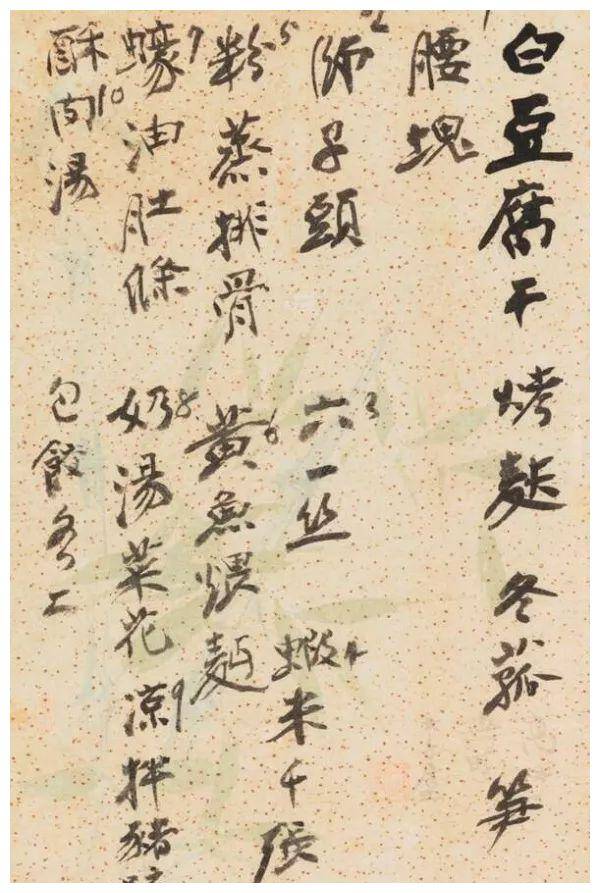 白豆腐干 烤麩 冬菰 笋
腰塊 1
師子頭 2 六一丝 3
蝦米千張 4
粉蒸排骨 5 黄魚煨麵 6
蠔油肚條 7 奶湯菜花 8 凉拌豬 9
酥肉湯 10 包餃